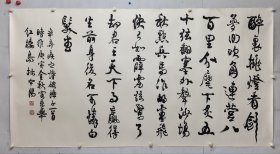 醉裏挑燈看劍
夢回吹角連營八
百里分麾下炙五
十弦翻塞外聲沙場
秋點兵馬作的盧飛
快弓如霹靂弦驚了
却君王天下事贏得
生前身後名可憐白
髮生